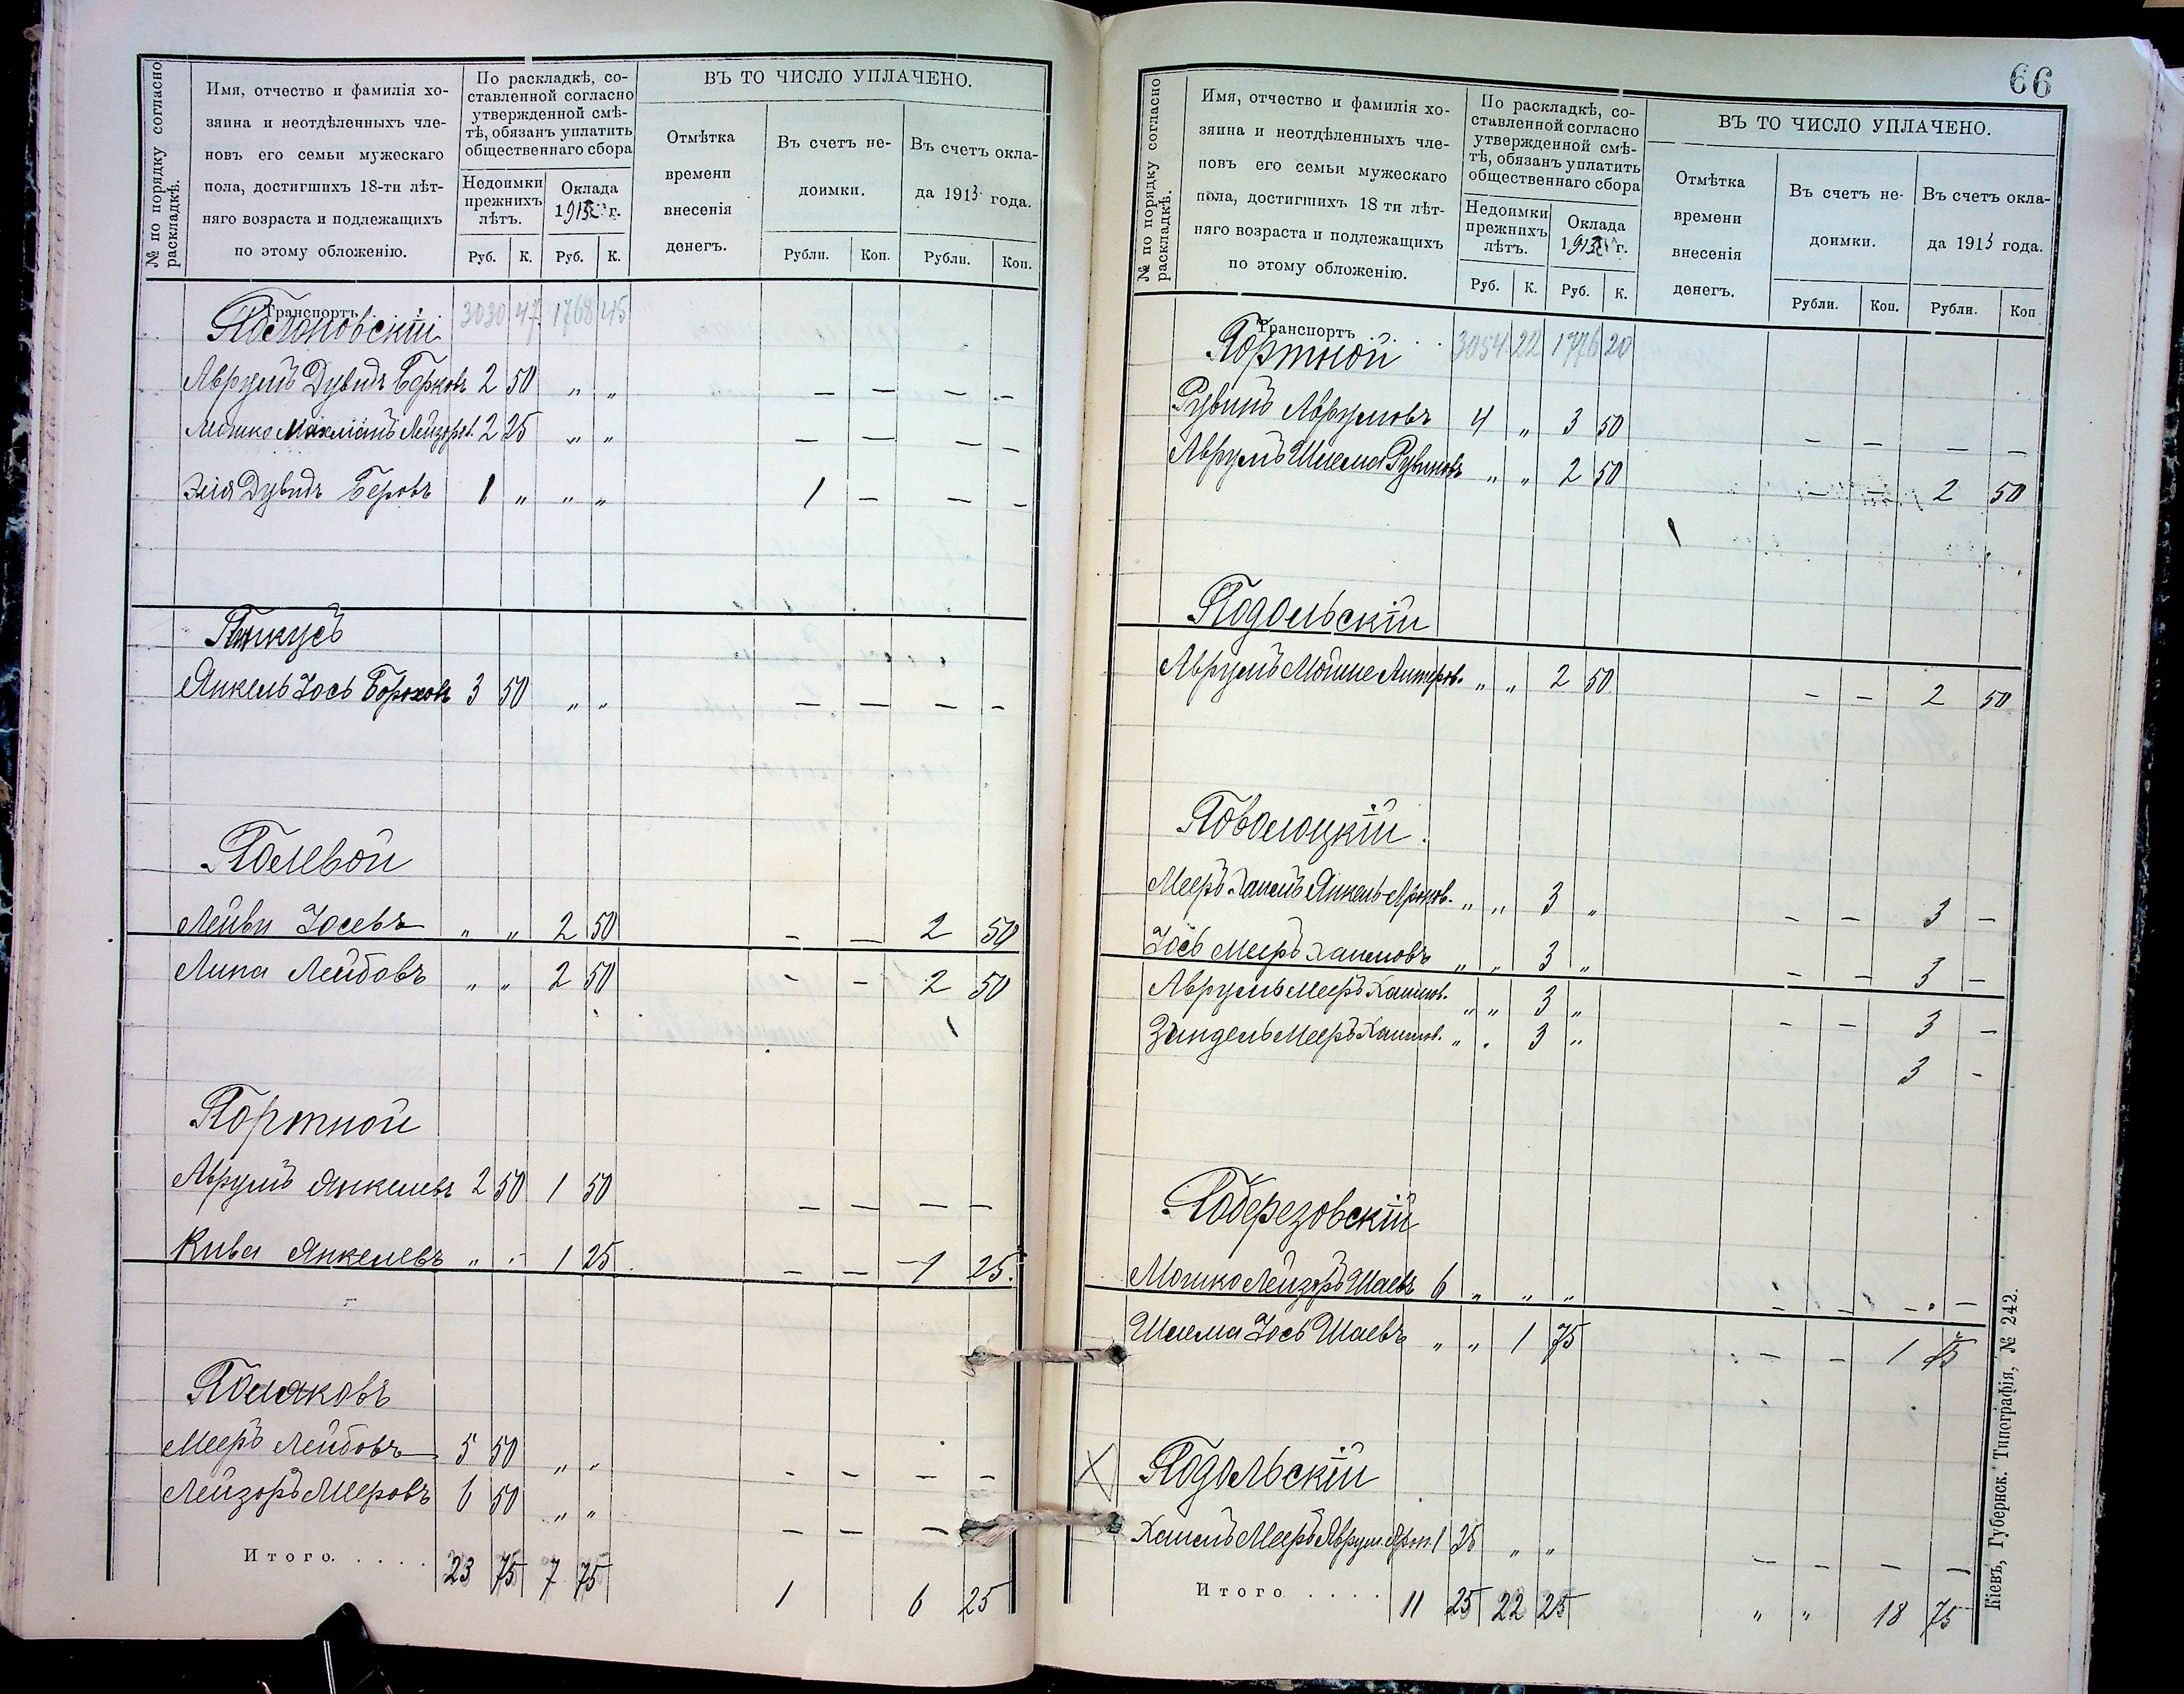 № по порядку согласно раскладкѣ.
Имя, отчество и фамилія хо-
зяина и неотдѣленныхъ чле-
новъ его семьи мужескаго
пола, достигшихъ 18-ти лѣт-
няго возраста и подлежащихъ
по этому обложенію.
По раскладкѣ, со-
ставленной согласно
утвержденной смѣ-
тѣ, обязанъ уплатить
общественнаго сбора
Недоимки
прежнихъ
лѣтъ.
Оклада
1913 г.
Руб. К. Руб. К.
ВЪ ТО ЧИСЛО УПЛАЧЕНО.
Отмѣтка
времени
внесенія
денегъ.
Въ счетъ не-
доимки.
Въ счетъ окла-
да 1913 года.
Рубли. Коп. Рубли. Коп.
Транспортъ 3030 47 1768 45
Полоновскій
Аврумъ Дувидъ Берковъ 2 50 " " — — — —
Мошко Лейзоров. 2 25 " " — — — —
Эля Дувидъ Беровъ 1 " " " 1 — — —
Пинкусъ
Янкель Іось Бороховъ 3 50 " " — — — —
Полевой
Лейви Іосевъ " " 2 50 — — 2 50
Липа Лейбовъ " " 2 50 — — 2 50
Портной
Аврумъ Янкелевъ 2 50 1 50 — — — —
Кива Янкелевъ " " 1 25 — — 1 25.
Поляковъ
Мееръ Лейбовъ 5 50 " " — — — —
Лейзоръ Мееровъ 6 50 " " — — —
Итого..... 23 75 7 75 1 6 25
66
№ по порядку согласно раскладкѣ.
Имя, отчество и фамилія хо-
зяина и неотдѣленныхъ чле-
новъ его семьи мужескаго
пола, достигшихъ 18 ти лѣт-
няго возраста и подлежащихъ
по этому обложенію.
По раскладкѣ, со-
ставленной согласно
утвержденной смѣ-
тѣ, обязанъ уплатить
общественнаго сбора
Недоимки
прежнихъ
лѣтъ.
Оклада
1913 г.
Руб. К. Руб. К.
ВЪ ТО ЧИСЛО УПЛАЧЕНО.
Отмѣтка
времени
внесенія
денегъ.
Въ счетъ не-
доимки.
Въ счетъ окла-
да 1913 года.
Рубли. Коп. Рубли. Коп
Транспортъ..... 3054 22 1776 20
Портной
Рувинъ Аврумовъ 4 " 3 50 — — — —
Аврумъ Шлема Рувиновъ " " 2 50 — — 2 50
Подольскій
Аврумъ Мойше Алтеров. " " 2 50 — — 2 50
Поволоцкій
Мееръ Хаимъ Янкель-Аронов. " " 3 " — — 3 —
Іось Мееръ Хаимовъ " " 3 " — — 3 —
Аврумъ Мееръ Хаимов. " " 3 " — — 3 —
Зиндель Мееръ Хаимов. " " 3 " 3 —
Поберезовскій
Мошко Лейзоръ Шаевъ 6 " " " — — — —
Шлема Іось Шаевъ " " 1 75 — — 1 75
X Подольскій
Хаимъ Мееръ Аврум. Арон. 1 25 " " — — — —
Итого.... 11 25 22 25 " " 18 75
Кіевъ, Губернск. Типографія, № 242.